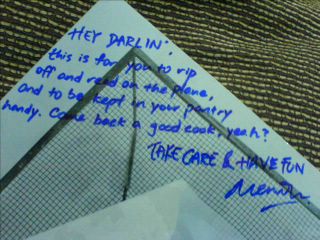 HEY DARLIN'
this is for you to rip
off and read on the plane,
and to be kept in your pantry
handy. Come back a good cook, yeah?
TAKE CARE & HAVE FUN